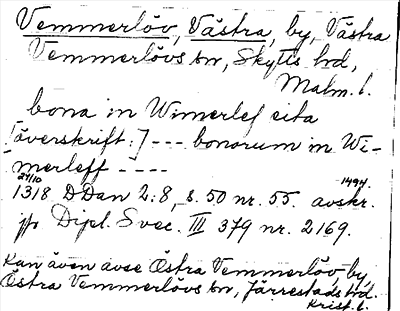 Vemmerlöv, Västra, by, Västra
Vemmerlövs sn, Skytts hd,
Malm. l.
bona in Wimerlef sita
[överskrift:] --- bonorum in Wi-
merleff ----
24/10 1494.
1318 DDan 2:8, s. 50 nr. 55. avskr.
jfr Dipl. Svec. III 379 nr. 2169.
Kan även avse Östra Vemmerlöv, by
Östra Vemmerlövs sn, Järrestads hd.
Krist. l.